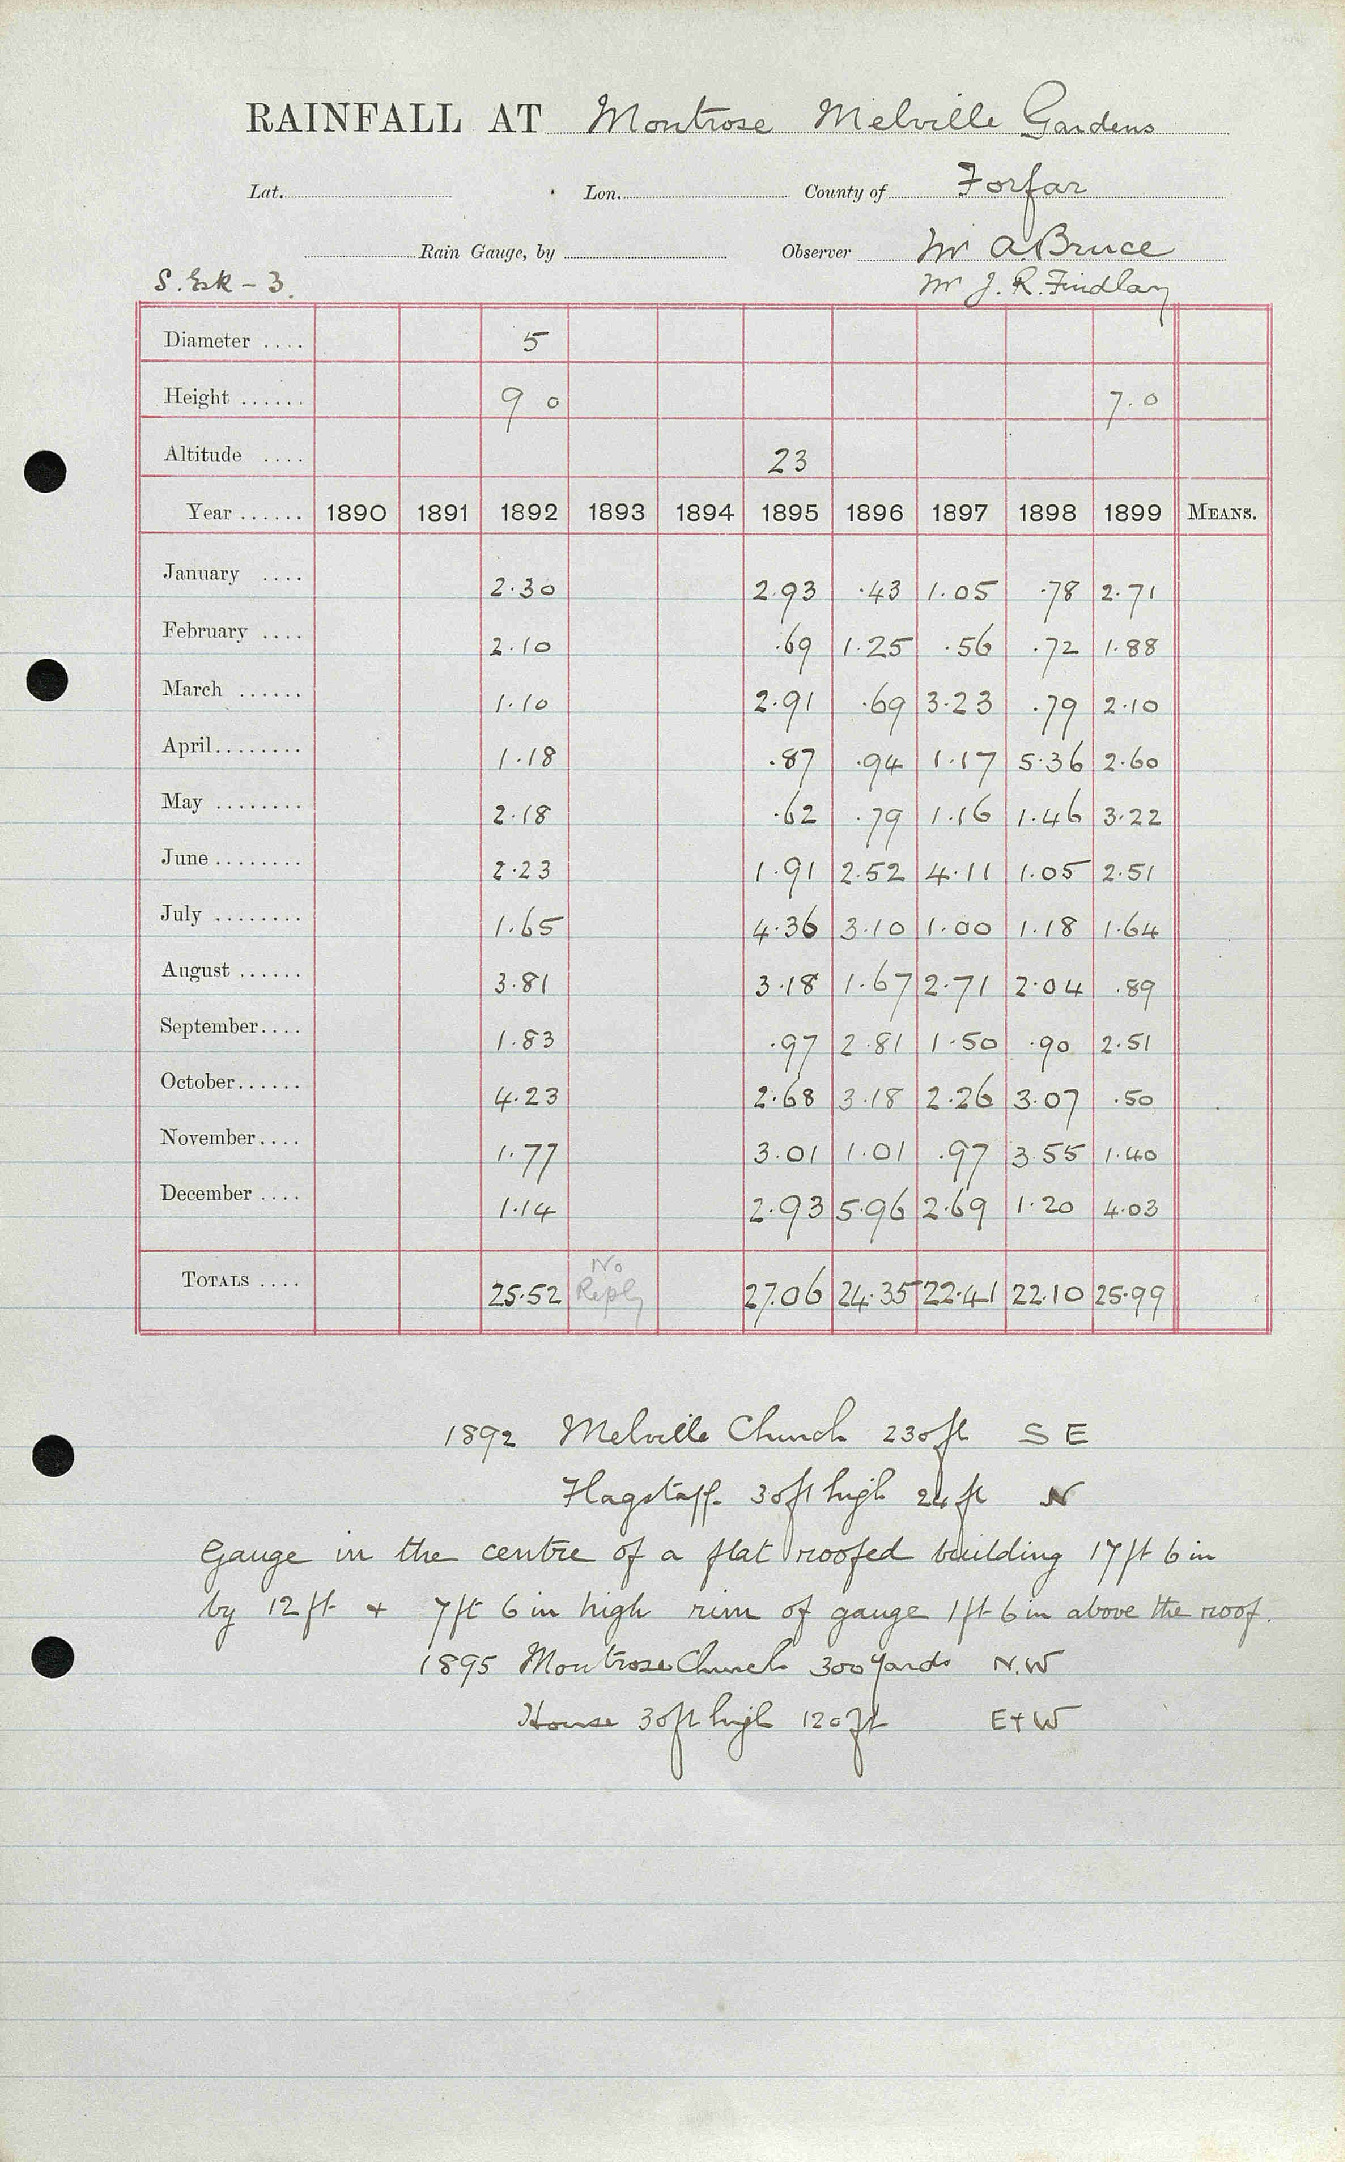 RAINFALL AT Montrose Melville Gardens
Lat. Lon. County of Forfar
Rain Gauge, by Observer Mr A. Bruce
S. Esk - 3. Mr J. R. Findlay
Diameter .... 5
Height ...... 9 0 7.0
Altitude .... 23
Year ...... 1890 1891 1892 1893 1894 1895 1896 1897 1898 1899 MEANS.
January .... 2.30 2.93 .43 1.05 .78 2.71
February .... 2.10 .69 1.25 .56 .72 1.88
March ...... 1.10 2.91 .69 3.23 .79 2.10
April........ 1.18 .87 .94 1.17 5.36 2.60
May ........ 2.18 .62 .79 1.16 1.46 3.22
June ........ 2.23 1.91 2.52 4.11 1.05 2.51
July ........ 1.65 4.36 3.10 1.00 1.18 1.64
August ...... 3.81 3.18 1.67 2.71 2.04 .89
September.... 1.83 .97 2.81 1.50 .90 2.51
October...... 4.23 2.68 3.18 2.26 3.07 .50
November.... 1.77 3.01 1.01 .97 3.55 1.40
December .... 1.14 2.93 5.96 2.69 1.20 4.03
TOTALS .... 25.52 No Reply 27.06 24.35 22.41 22.10 25.99
1892 Melville Church 230ft S E
Flagstaff. 30ft high 24ft N
Gauge in the centre of a flat roofed building 17ft 6in
by 12ft + 7ft 6in high rim of gauge 1ft 6in above the roof.
1895 Montrose Church 300 yards N.W
House 30ft high 120ft E+W